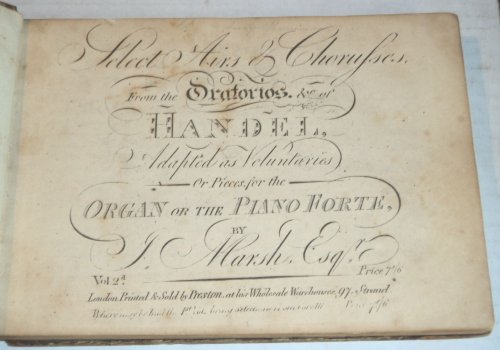 Select Airs & Chorusses,
From the Oratorios, &c. of
HANDEL,
Adapted as Voluntaries
Or Pieces, for the
ORGAN OR THE PIANO FORTE,
BY
J. Marsh, Esqr.
Vol 2d. Price 7s/6
London Printed & Sold by Preston, at his Wholesale Warehouses, 97, Strand.
Where may be had the 1st Vol. being selections